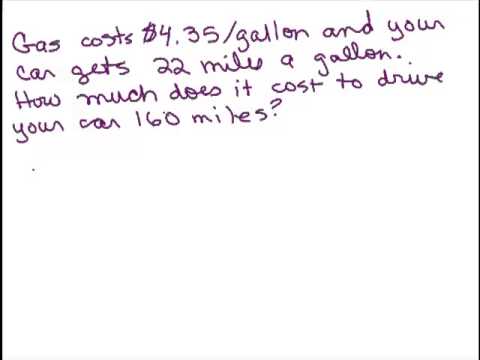 Gas costs $4.35/gallon and your
car gets 22 miles a gallon..
How much does it cost to drive
your car 160 miles?